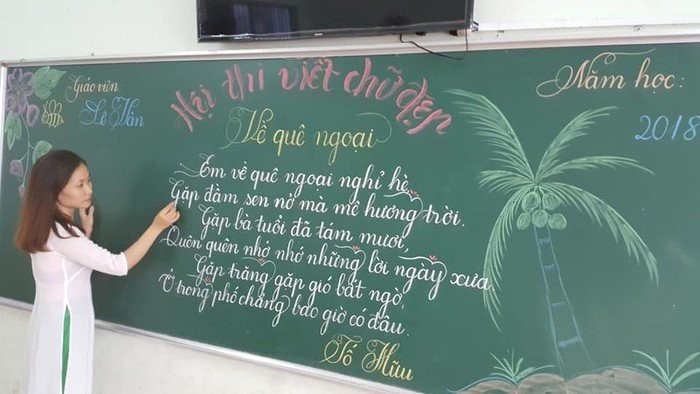 Giáo viên
Lê Vân
Hội thi viết chữ đẹp
Năm học:
2018
Về quê ngoại
Em về quê ngoại nghỉ hè,
Gặp đầm sen nở mà mê hương trời.
Gặp bà tuổi đã tám mươi,
Quên quên nhớ nhớ những lời ngày xưa.
Gặp trăng gặp gió bất ngờ,
Ở trong phố chẳng bao giờ có đâu.
Tố Hữu